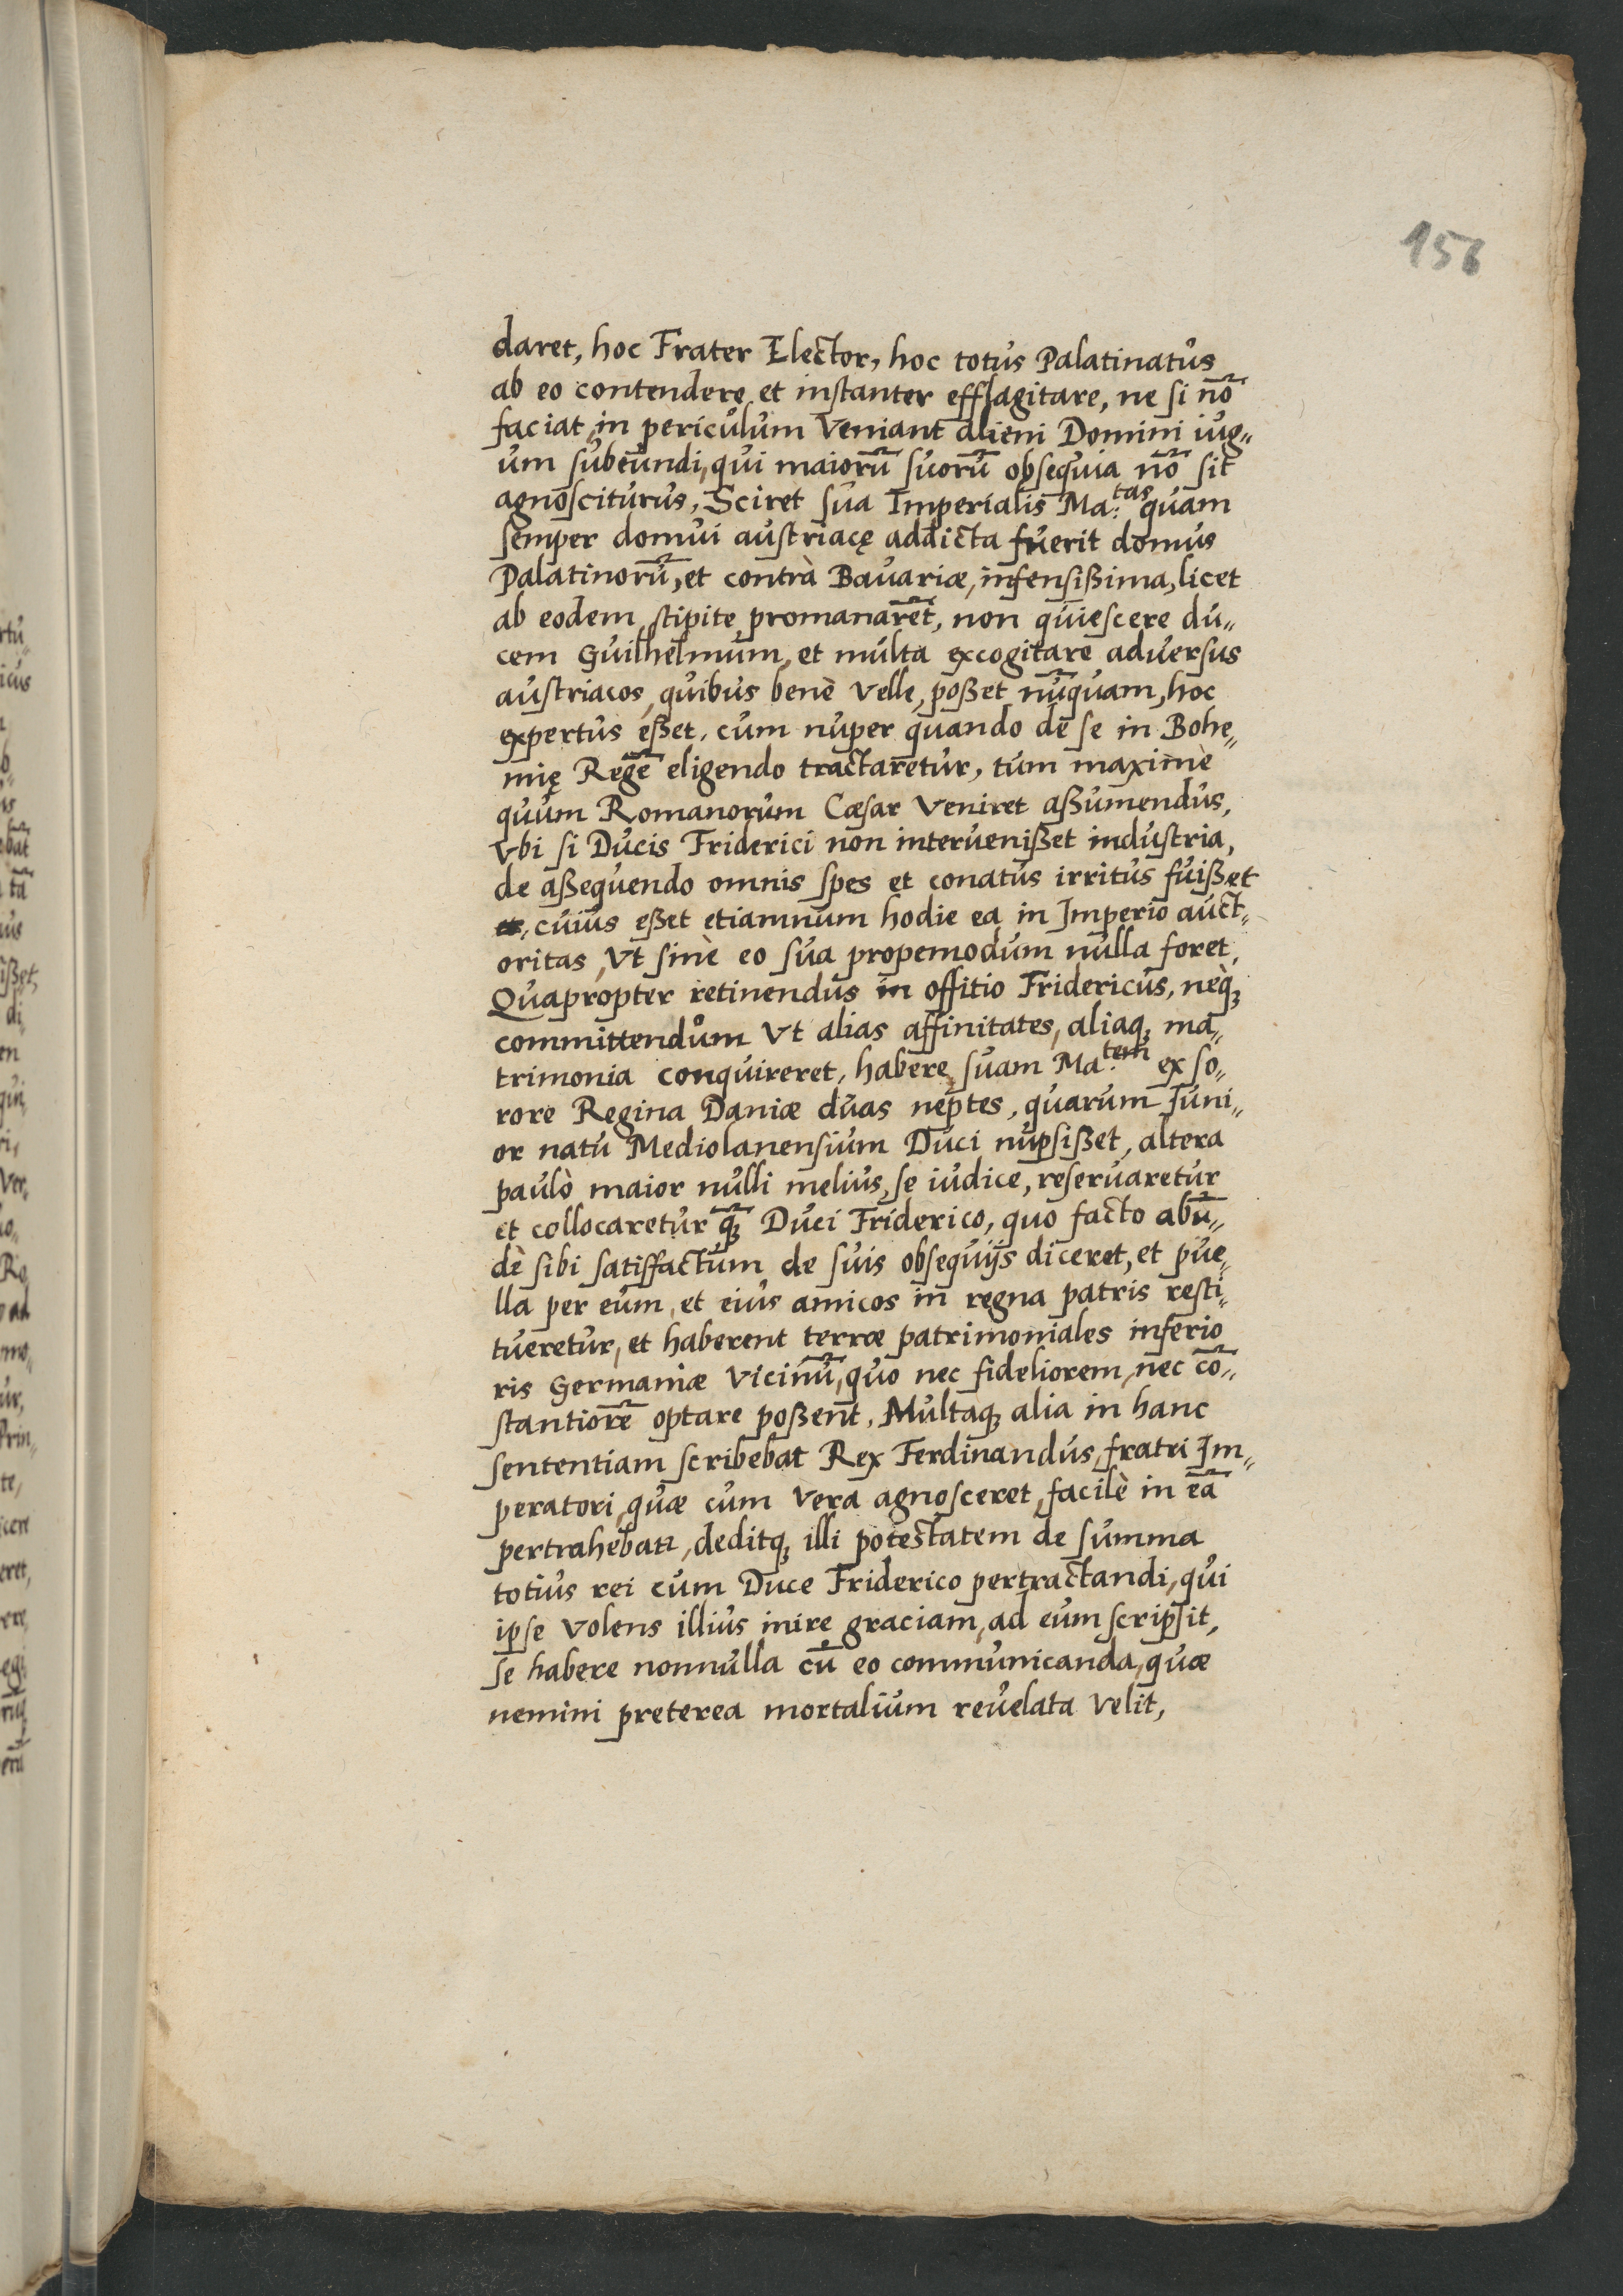 156
daret, hoc Frater Elector, hoc totus Palatinatus
ab eo contendere et instanter efflagitare, ne si nō
faciat, in periculum Veniant alieni Domini iug„
um subeundi, qui maiorū suorū obsequia nō sit
agnosciturus, Sciret sua Imperialis Ma:tas quam
semper domui austriacę addicta fuerit domus
Palatinorū, et contrà Bavariæ, infensißima, licet
ab eodem stipite promanarēt, non quiescere du„
cem Guilhelmum, et multa excogitare adversus
austriacos, quibus benè Velle, poßet nūquam, hoc
expertus eßet, cum nuper quando de se in Bohe„
mię Regē eligendo tractaretur, tum maximè
quum Romanorum Cæsar Veniret aßumendus,
Vbi si Ducis Friderici non intervenißet industria,
de aßequendo omnis spes et conatus irritus fuißet
et, cuius eßet etiamnum hodie ea in Imperio auct„
oritas, Vt sinè eo sua propemodum nulla foret,
Quapropter retinendus in offitio Fridericus, neq̢
committendum Vt alias affinitates, aliaq̢ ma„
trimonia conquireret, habere suam Ma:tem ex so„
rore Regina Daniæ duas neptes, quarum Iuni„
or natu Mediolanensium Duci nupsißet, altera
paulò maior nulli melius, se iudice, reservaretur
et collocaretur q̢̄ Duci Friderico, quo facto abū„
dè sibi satisfactum de suis obsequijs diceret, et pue„
lla per eum, et eius amicos in regna patris resti„
tueretur, et haberent terræ patrimoniales inferio
ris Germaniæ Vicinū, quo nec fideliorem, nec cō„
stantiorē optare poßent, Multaq̢ alia in hanc
sententiam scribebat Rex Ferdinandus, fratri Im„
peratori, quæ cum Vera agnosceret, facilè in eā
pertrahebatꝛ, deditq̢ illi potestatem de summa
totius rei cum Duce Friderico pertractandi, qui
ipse Volens illius inire graciam, ad eum scripsit,
se habere nonnulla cū eo communicanda, quæ
nemini preterea mortalium revelata Velit,